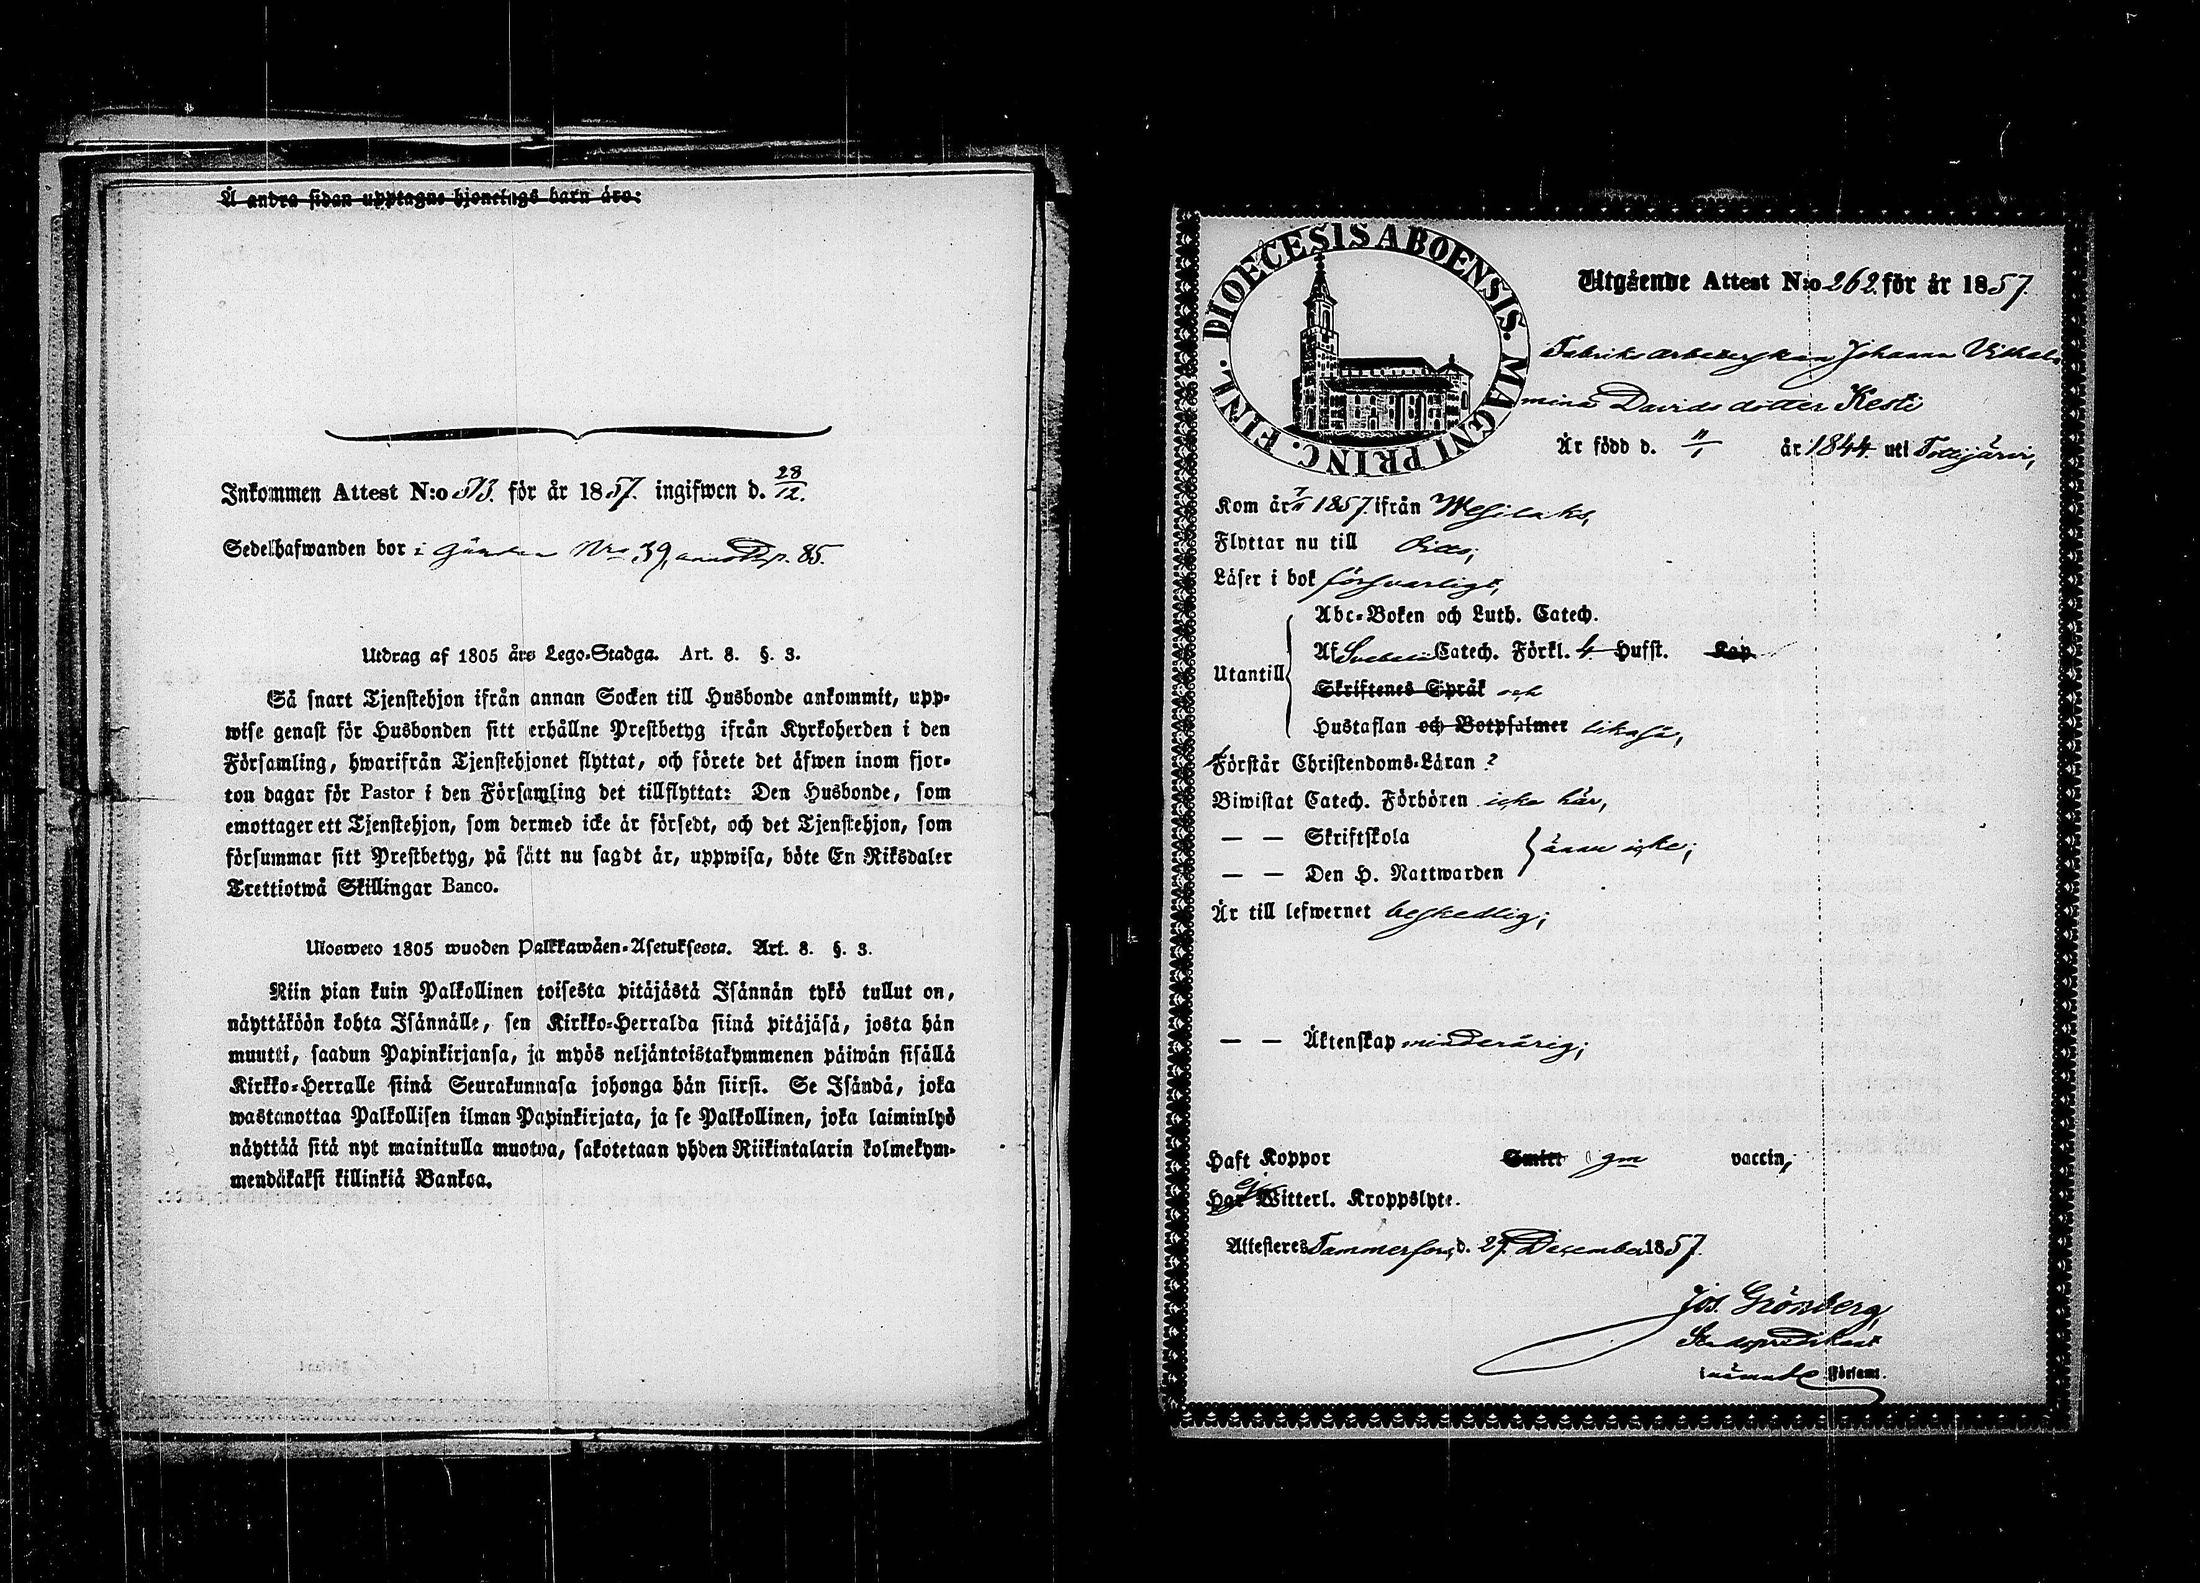 Å andra sidan upptagne hjonelags barn äro:
Inkommen Attest N:o 513. för år 1857. ingifwen d. 28/12.
Sedelhafwanden bor i gården Nro 39, 85.
Utdrag af 1805 års Lego-Stadga. Art. 8. §. 3.
Så snart Tjenstehjon ifrån annan Socken till Husbonde ankommit, upp-
wise genast för Husbonden sitt erhållne Prestbetyg ifrån Kyrkoherden i den
Församling, hwarifrån Tjenstehjonet flyttat, och förete det äfwen inom fjor-
ton dagar för Pastor i den Församling det tillflyttat: Den Husbonde, som
emottager ett Tjenstehjon, som dermed icke är försedt, och det Tjenstehjon, som
försummar sitt Prestbetyg, på sätt nu sagdt är, uppwisa, böte En Riksdaler
Trettiotwå Skillingar Banco.
Ulosweto 1805 wuoden Palkkawäen-Asetuksesta. Art. 8. §. 3.
Niin pian kuin Palkollinen toisesta pitäjästä Isännän tykö tullut on,
näyttäköön kohta Isännälle, sen Kirkko-Herralda siinä pitäjäsä, josta hän
muutti, saadun Papinkirjansa, ja myös neljäntoistakymmenen päiwän sisällä
Kirkko-Herralle siinä Seurakunnasa johonga hän siirsi. Se Isändä, joka
wastanottaa Palkollisen ilman Papinkirjata, ja se Palkollinen, joka laiminlyö
näyttää sitä nyt mainitulla muotoa, sakotetaan yhden Riikintalarin kolmekym-
mendäkaksi killinkiä Bankoa.
DIOECESIS ABOENSIS. MAGNI PRINC. FINL.
Utgående Attest N:o 262. för år 1857.
Fabriks arbeterskan Johanna Vilhel-
mina Davids dotter Kesti
Är född d. 11/1 år 1844. uti Tottijärvi,
Kom år 7/11 1857. ifrån Wesilaks,
Flyttar nu till
Läser i bok försvarligt,
Abc-Boken och Luth. Catech.
Utantill
Af Svebelii Catech. Förkl. 4 Hufst. Kap
Skriftenes Språk och
Hustaflan och Botpsalmer likaså,
Förstår Christendoms-Läran?
Biwistat Catech. Förhören icke här,
— — Skriftskola
ännu icke;
— — Den H. Nattwarden
Är till lefwernet beskedlig;
— — Äktenskap minderårig;
Haft Koppor Smitt gm vaccin,
Har ej Witterl. Kroppslyte.
Attesteres Tammerfors, d. 27. December 1857.
Jos. Grönberg,
Stadspredikant
i nämnde Församl.